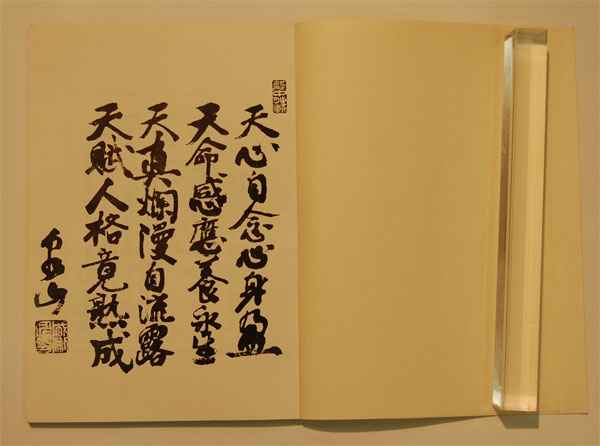 天心自念心身盈
天命感應養永生
天真爛漫自流露
天賦人格竟熟成
泉山